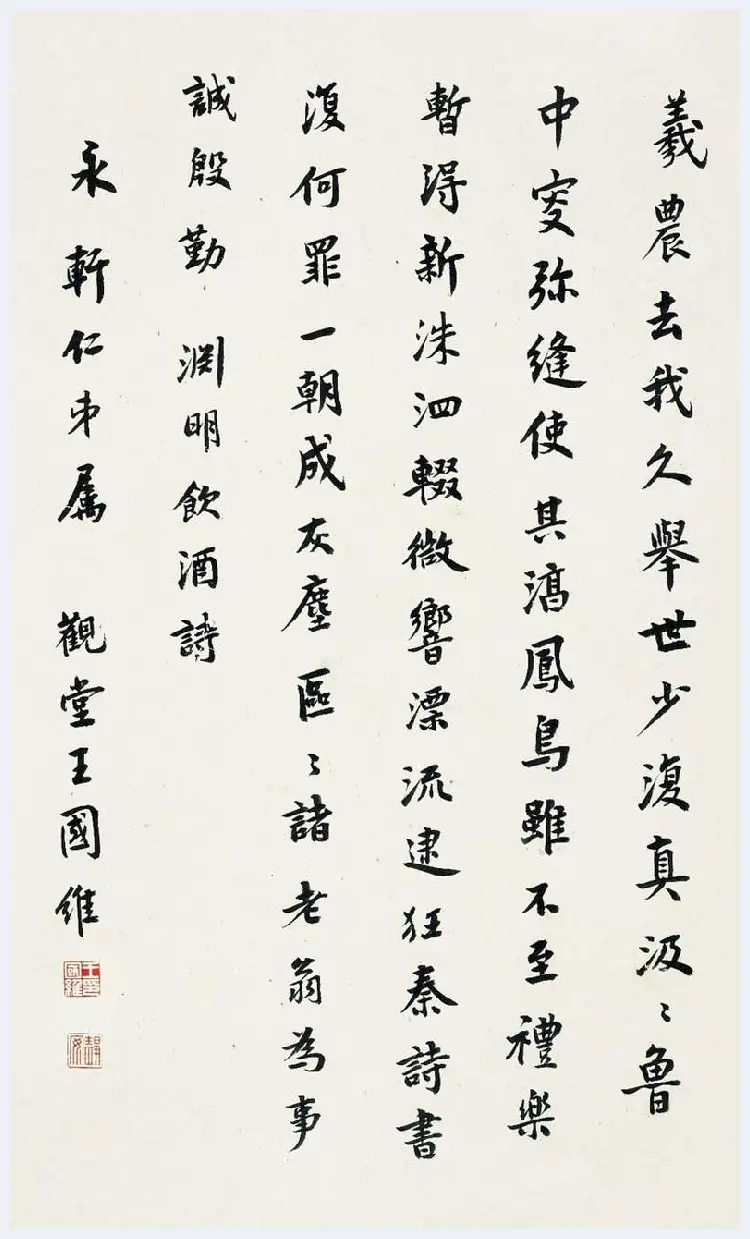 羲農去我久舉世少復真汲〻魯
中叟弥縫使其淳鳳鳥雖不至禮樂
暫得新洙泗輟微響漂流逮狂秦詩書
復何罪一朝成灰塵區〻諸老翁為事
誠殷勤 淵明飲酒詩
永軒仁弟屬 觀堂王國維
王國維印
靜安